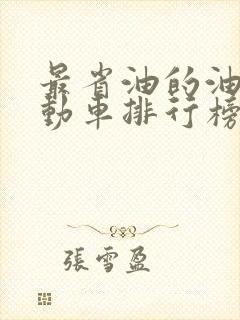 最省油的油
動車排行榜
張雪盈